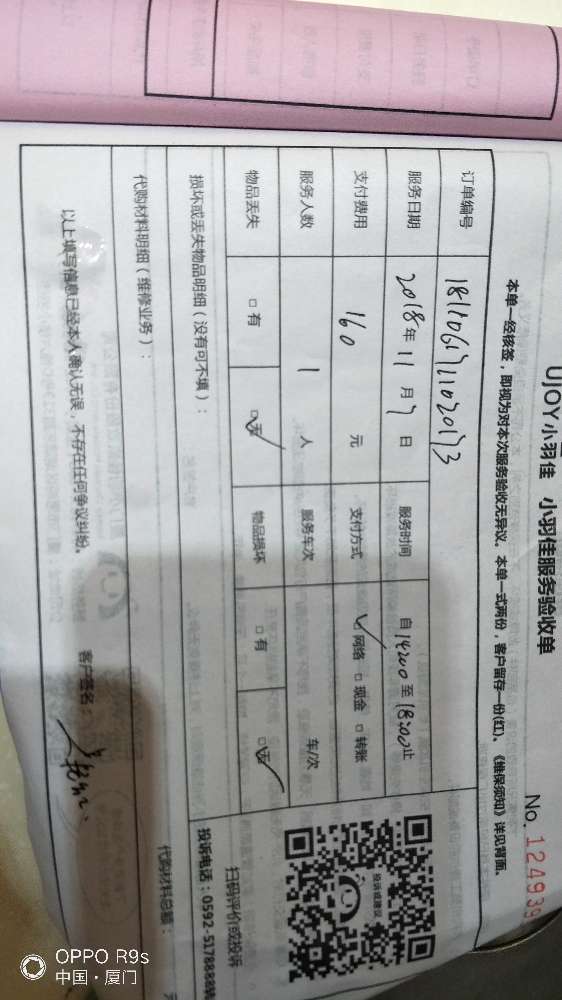 UJOY小羽佳 小羽佳服务验收单
No. 124939
本单一经核签，即视为对本次服务验收无异议。本单一式两份，客户留存一份(红)。《维保须知》详见背面。
订单编号 1811061711020173
服务日期 2018年11月7日 服务时间 自14:00至18:00止
支付费用 160 元 支付方式 ☑网络 □现金 □转账
服务人数 1 人 服务车次 车/次
物品丢失 □有 ☑无 物品损坏 □有 ☑无
投诉或建议
扫码评价或投诉
投诉电话：0592-5178888转
损坏或丢失物品明细（没有可不填）：
代购材料明细（维修业务）：
代购材料总额：
以上填写信息已经本人确认无误，不存在任何争议纠纷。
客户签名：
OPPO R9s
中国·厦门